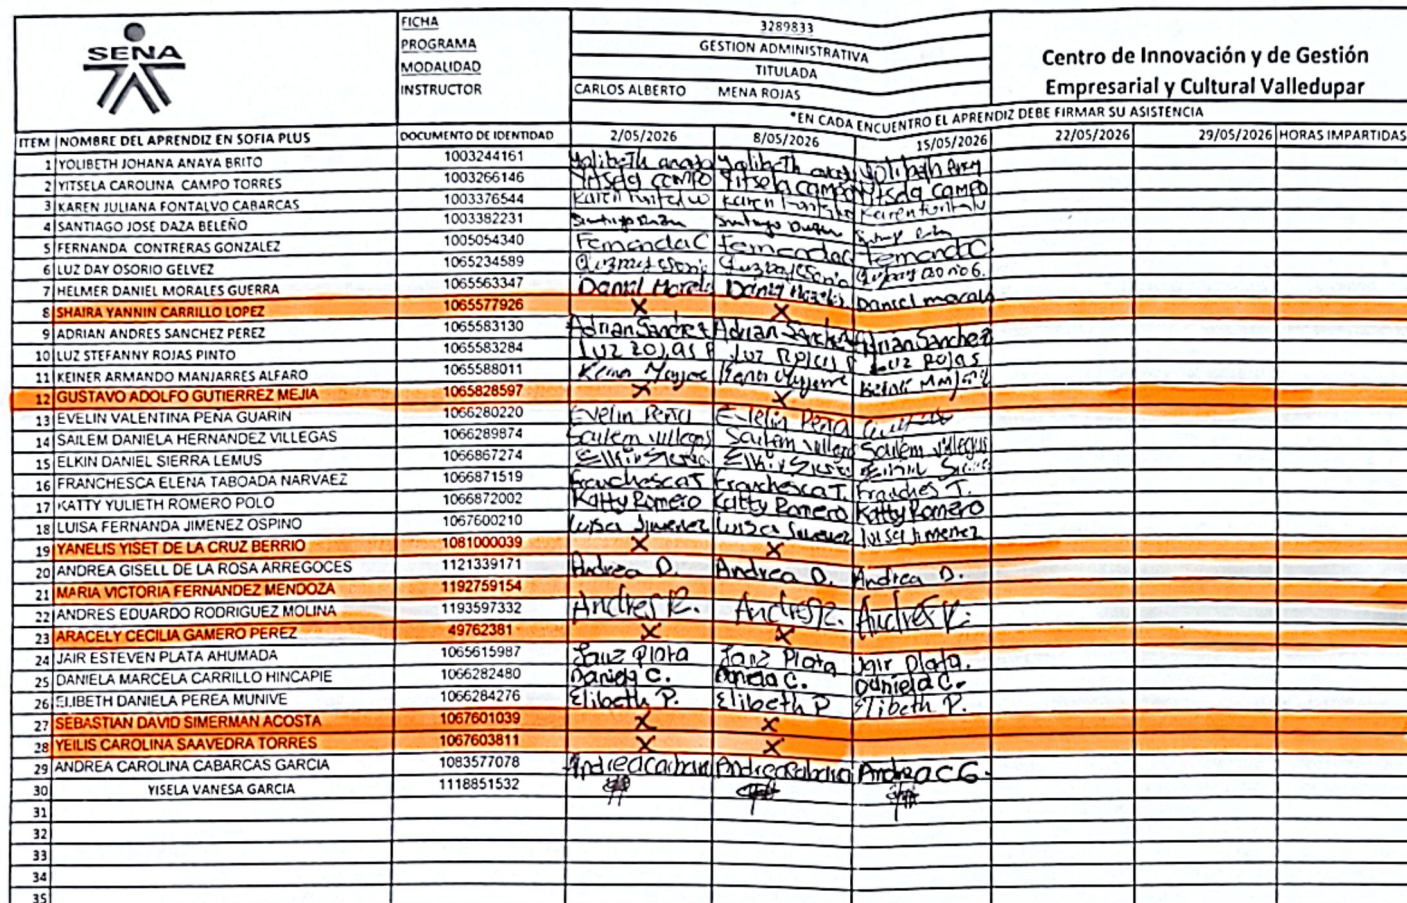 SENA
FICHA 3289833
PROGRAMA GESTION ADMINISTRATIVA
MODALIDAD TITULADA
INSTRUCTOR CARLOS ALBERTO MENA ROJAS
Centro de Innovación y de Gestión
Empresarial y Cultural Valledupar
*EN CADA ENCUENTRO EL APRENDIZ DEBE FIRMAR SU ASISTENCIA
ITEM NOMBRE DEL APRENDIZ EN SOFIA PLUS DOCUMENTO DE IDENTIDAD 2/05/2026 8/05/2026 15/05/2026 22/05/2026 29/05/2026 HORAS IMPARTIDAS
1 YOLIBETH JOHANA ANAYA BRITO 1003244161 Yolibeth anaya Yolibeth anay Yolibeth Anay
2 YITSELA CAROLINA CAMPO TORRES 1003266146 Yitsela campo Yitsela campo Yitsela campo
3 KAREN JULIANA FONTALVO CABARCAS 1003376544 Karen Fontalvo Karen Fontalvo Karen Fontalvo
4 SANTIAGO JOSE DAZA BELEÑO 1003382231 Santiago Daza Santiago Daza
5 FERNANDA CONTRERAS GONZALEZ 1005054340 Fernanda C Fernanda C Fernanda C
6 LUZ DAY OSORIO GELVEZ 1065234589
7 HELMER DANIEL MORALES GUERRA 1065563347 Daniel Morales Daniel Morales Daniel morales
8 SHAIRA YANNIN CARRILLO LOPEZ 1065577926 X X
9 ADRIAN ANDRES SANCHEZ PEREZ 1065583130 Adrian Sanchez Adrian Sanchez Adrian Sanchez
10 LUZ STEFANNY ROJAS PINTO 1065583284 Luz Rojas P Luz Rojas P Luz Rojas
11 KEINER ARMANDO MANJARRES ALFARO 1065588011
12 GUSTAVO ADOLFO GUTIERREZ MEJIA 1065828597 X X
13 EVELIN VALENTINA PEÑA GUARIN 1066280220 Evelin Peña Evelin Peña
14 SAILEM DANIELA HERNANDEZ VILLEGAS 1066289874 Sailem Villegas Sailem Villegas Sailem Villegas
15 ELKIN DANIEL SIERRA LEMUS 1066867274 Elkin Sierra Elkin Sierra Elkin Sierra
16 FRANCHESCA ELENA TABOADA NARVAEZ 1066871519 Franchesca T Franchesca T. Franches T.
17 KATTY YULIETH ROMERO POLO 1066872002 Katty Romero Katty Romero Katty Romero
18 LUISA FERNANDA JIMENEZ OSPINO 1067600210 Luisa Jimenez Luisa Jimenez luisa Jimenez
19 YANELIS YISET DE LA CRUZ BERRIO 1081000039 X X
20 ANDREA GISELL DE LA ROSA ARREGOCES 1121339171 Andrea D. Andrea D. Andrea D.
21 MARIA VICTORIA FERNANDEZ MENDOZA 1192759154
22 ANDRES EDUARDO RODRIGUEZ MOLINA 1193597332 Andres R. Andres R. Andres R.
23 ARACELY CECILIA GAMERO PEREZ 49762381 X X
24 JAIR ESTEVEN PLATA AHUMADA 1065615987 Jair Plata Jair Plata Jair plata.
25 DANIELA MARCELA CARRILLO HINCAPIE 1066282480 Daniela C. Daniela C. Daniela C.
26 ELIBETH DANIELA PEREA MUNIVE 1066284276 Elibeth P. Elibeth P Elibeth P.
27 SEBASTIAN DAVID SIMERMAN ACOSTA 1067601039 X X
28 YEILIS CAROLINA SAAVEDRA TORRES 1067603811 X X
29 ANDREA CAROLINA CABARCAS GARCIA 1083577078 Andrea cabarca Andrea Cabarca Andrea C G.
30 YISELA VANESA GARCIA 1118851532
31
32
33
34
35